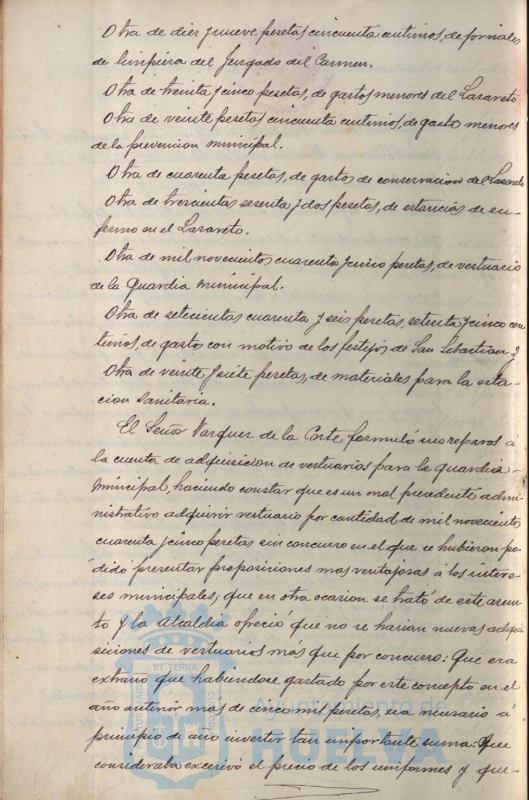 Otra de diez y nueve pesetas cincuenta centimos, de jornales
de limpieza del Juzgado del Carmen.
Otra de treinta y cinco pesetas, de gastos menores del Lazareto.
Otra de veinte pesetas cincuenta centimos, de gasto menores
de la prevencion municipal.
Otra de cuarenta pesetas, de gastos de conservacion del Lazareto
Otra de trescientas sesenta y dos pesetas, de estancias de en-
fermo en el Lazareto.
Otra de mil novecientos cuarenta y cinco pesetas, de vestuario
de la Guardia municipal.
Otra de setecientas cuarenta y seis pesetas, setenta y cinco cen
timos, de gastos con motivo de los festejos de San Sebastian y
Otra de veinte y siete pesetas, de materiales para la esta-
cion sanitaria.
El Señor Vazquez de la Corte formuló unos reparos á
la cuenta de adquisicion de vestuarios para la guardia
municipal, haciendo constar que es un mal precedente admi-
nistrativo adquirir vestuario por cantidad de mil novecientos
cuarenta y cinco pesetas sin concurso en el que se hubieron po-
dido presentar proposiciones mas ventajosas á los intere-
ses municipales; que en otra ocasion se trató de este asun-
to y la Alcaldia ofreció que no se harian nuevas adqui
siciones de vestuarios más que por concurso: Que era
extraño que habiendose gastado por este concepto en el
año anterior más de cinco mil pesetas, sea necesario á
principio de año invertir tan importante suma: Que
consideraba excesivo el precio de los uniformes y que-
ET TERRA
Ayuntamiento de
HUELVA